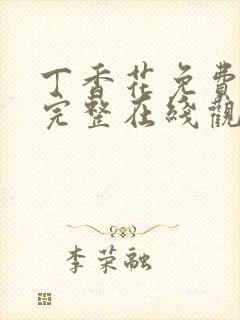 丁香花免费
完整在线觀
李荣融